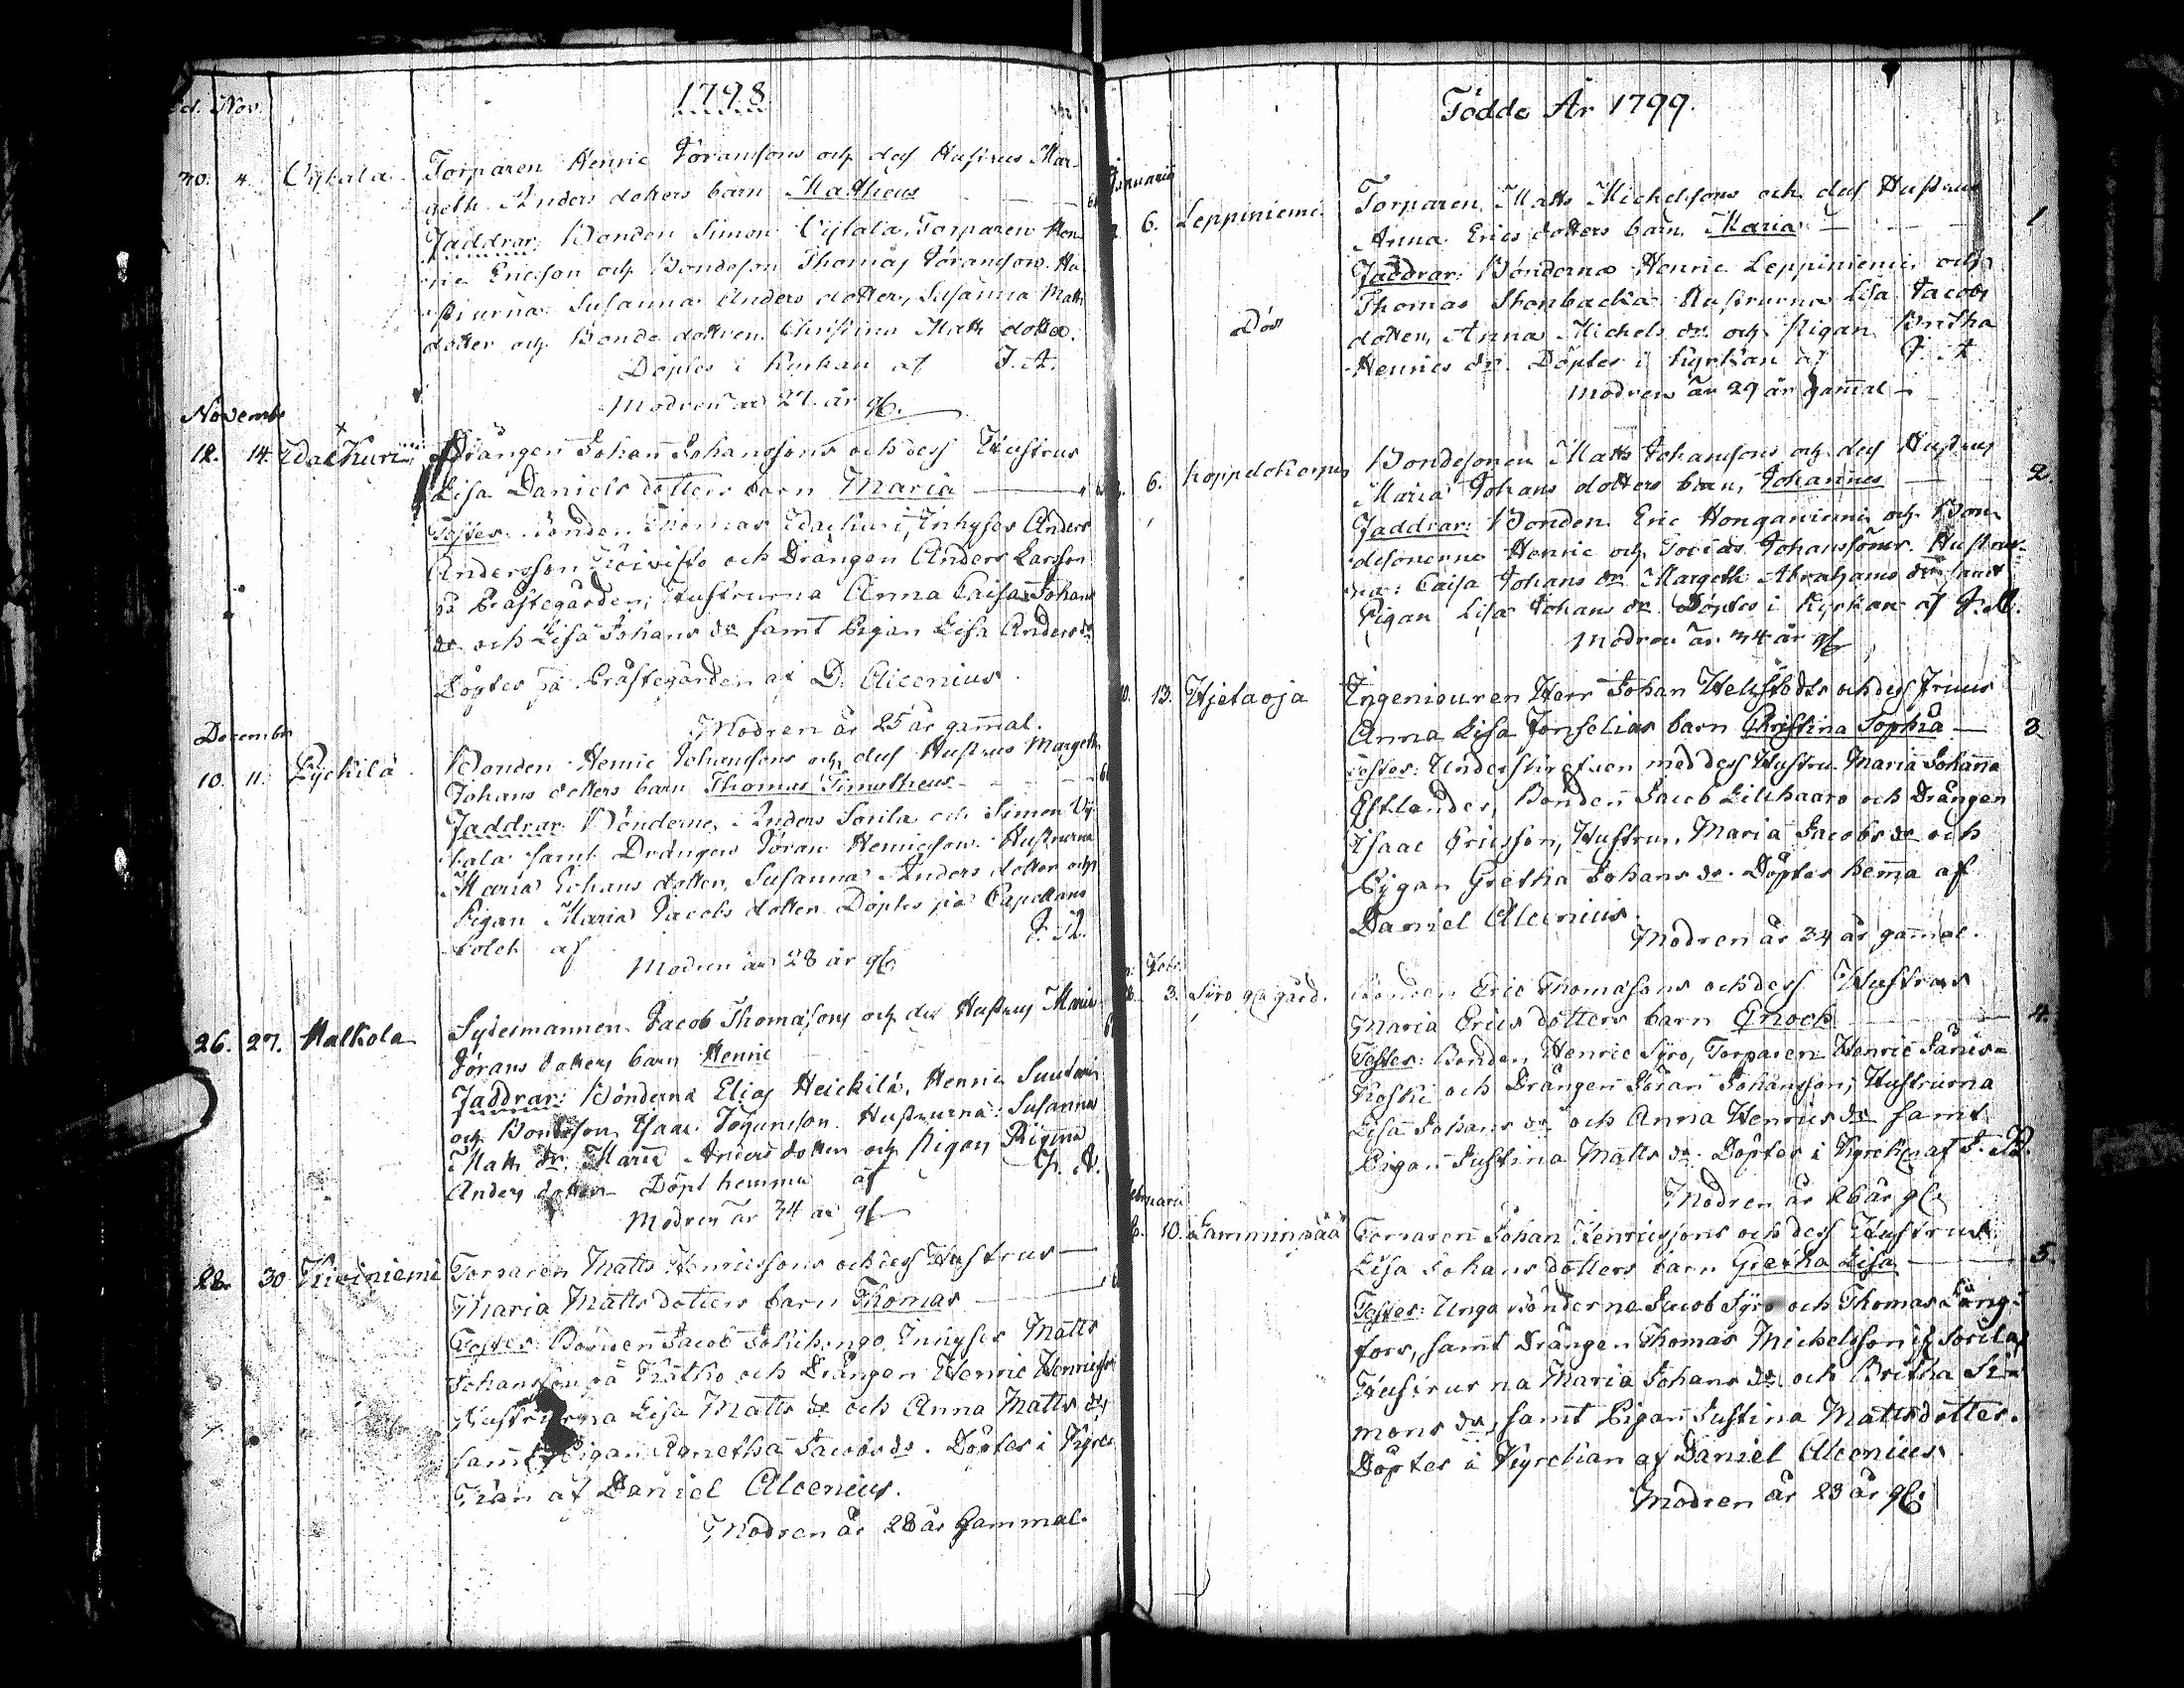 1798
Nov.
30. 4. Torparen Henric Göranssons och dess Hustrus Mar-
geth Anders dotters barn Mattheus
Faddrar: Bonden Simon Torparen Hen-
ric Ericson och Bondeson Thomas Göransson. Hu-
strurna: Susanna Anders dotter, Susanna Matts
dotter och Bonde dottren Christina Matts dotter.
Döptes i Kyrkan af J. A.
Modren är 27 år gl.
Novembr
12. 14. Ydackuri Drängen Johan Johanssons och dess Hustrus
Lisa Daniels dotters barn Maria
Testes: Bonden Thomas Ydackuri, Inhyses Anders
Andersson Koivisto och Drängen Anders Larsson
på Prästegården; Hustrurna Anna Caisa Johans
dr och Lisa Johans dr samt Pigan Lisa Anders dr
Döptes på Prästegården af D. Alcenius.
Modren är 25 år gammal.
Decembr
10. 11. Bonden Henric Johanssons och dess Hustrus Margeth
Johans dotters barn Thomas Timotheus
Faddrar: Bönderne, Anders Sorila och Simon Vy-
tala samt Drängen Göran Henricsson. Hustrurna
Maria Johans dotter, Susanna Anders dotter och
Pigan Maria Jacobs dotter. Döptes på Capellans
bolet af
Modren är 28 år gl.
26. 27. Halkola Sexmannen Jacob Thomassons och des Hustrus Maria
Görans dotters barn Henric
Faddrar: Bönderna Elias Heickilä, Henric
och Bondeson Isaac Hustrurna: Susanna
Matts dr, Maria Anders dotter och Pigan Regina
Anders dotter. Döpt hemma af
Modren är 34 år gl
28. 30 Kiviniemi Torparen Matts Henricssons och dess Hustrus
Maria Matts dotters barn Thomas
Testes: Bonden Jacob Inhyses Matts
Johansson på och Drängen Henric Henricsson
Hustrurna Lisa Matts dr och Anna Matts dr
samt Pigan Agnetha Jacobs dr. Döptes i Kyrc-
kan af Daniel Alcenius.
Modren är 28 år gammal.
Födde År 1799.
Januarii
6. Leppiniemi Torparen Matts Michelssons och dess Hustrus
Anna Erics dotters barn Maria 1
Faddrar: Bönderna Henric Leppiniemi och
Thomas Stenbacka Hustrurna Lisa Jacobs
dotter, Anna Michels dr och Pigan Britha
Henrics dr. Döptes i Kyrkan af J. A.
Modren är 29 år gammal
6. Bondesonen Matts Johanssons och dess Hustrus
Maria Johans dotters barn, Johannes 2
Faddrar: Bonden Eric Honganiemi och Bon-
desonerne Henric och Tobias Johanssöner. Hustrur-
na: Caisa Johans dr Margeth Abrahams dr samt
Pigan Lisa Johans dr. Döptes i Kyrkan af
Modren är 34 år gl
13. Hjetaoja Ingenieuren Herr Johan Hellstedts och dess Fruus
Anna Lisa Forselias barn Christina Sophia 3.
Testes: med dess Hustru Maria Johanna
Estlander, Bonden Jacob Lillhaaro och Drängen
Isaac Ericsson, Hustrun Maria Jacobs dr och
Pigan Gretha Johans dr. Döptes hemma af
Daniel Alcenius.
Modren är 34 år gammal.
Febr.
3. Syro gård. Bonden Eric Thomassons och dess Hustrus
Maria Erics dotters barn Enoch 4.
Testes: Bonden Henric Syro, Torparen Henric Jänis-
koski och Drängen Johan Johansson; Hustrurna
Lisa Johans dr och Anna Henrics dr samt
Pigan Justina Matts dr. Döptes i Kyrckan af
Modren är 26 år gl.
Februarii
10. Lamminpää Torparen Johan Henricssons och dess Hustrus
Lisa Johans dotters barn Gretha Lisa 5.
Testes: Unga Bönderne Jacob Syro och Thomas Lång-
fors, samt Drängen Thomas Michelsson if. Sorila,
Hustrurna Maria Johans dr och Britha Si-
mons dr, samt Pigan Justina Matts dotter.
Döptes i Kyrckan af Daniel Alcenius
Modren är 23 år gl.